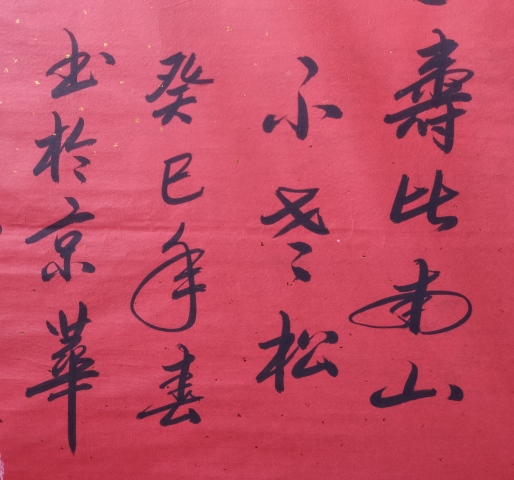 壽比南山
不老松
癸巳年春
书於京華